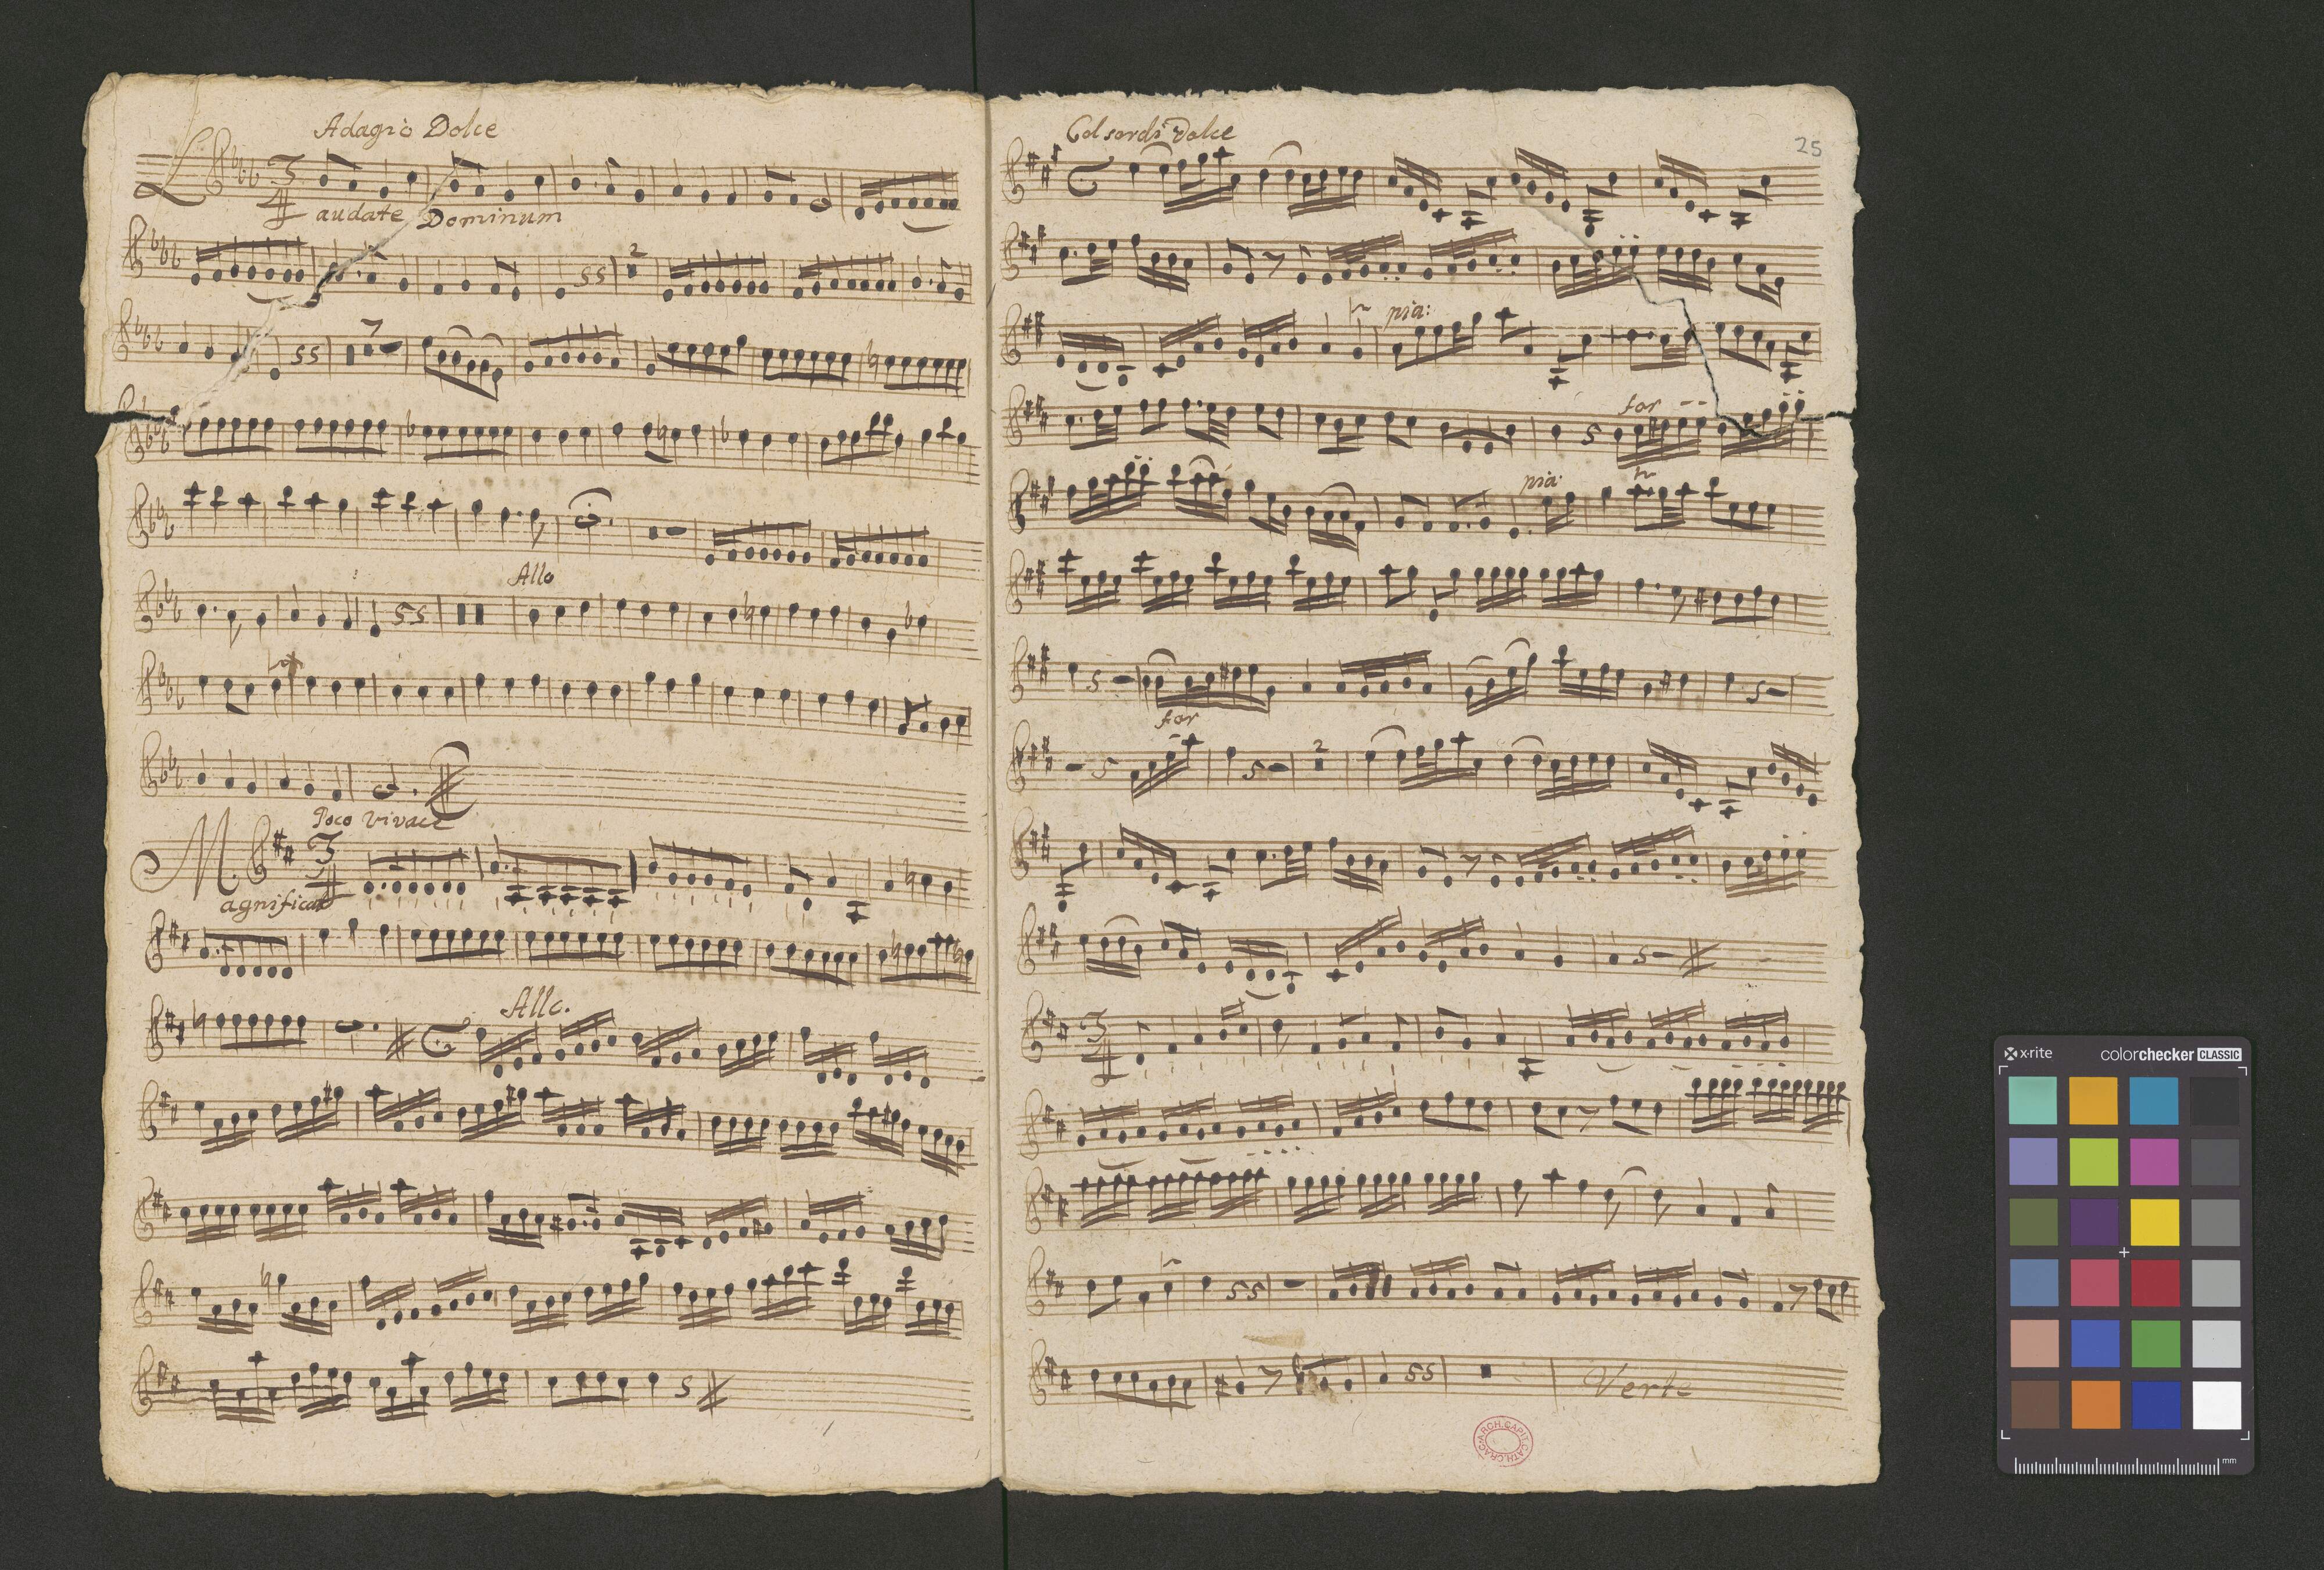 Adagio Dolce
Laudate Dominum
2
7
Allo
Poco vivace
Magnificat
Allo.
25
Col sordi Dolce
pia:
for
pia:
for
2
Verte
ARCH. CAPIT. CATH. CRAC.
x-rite
colorchecker CLASSIC
mm